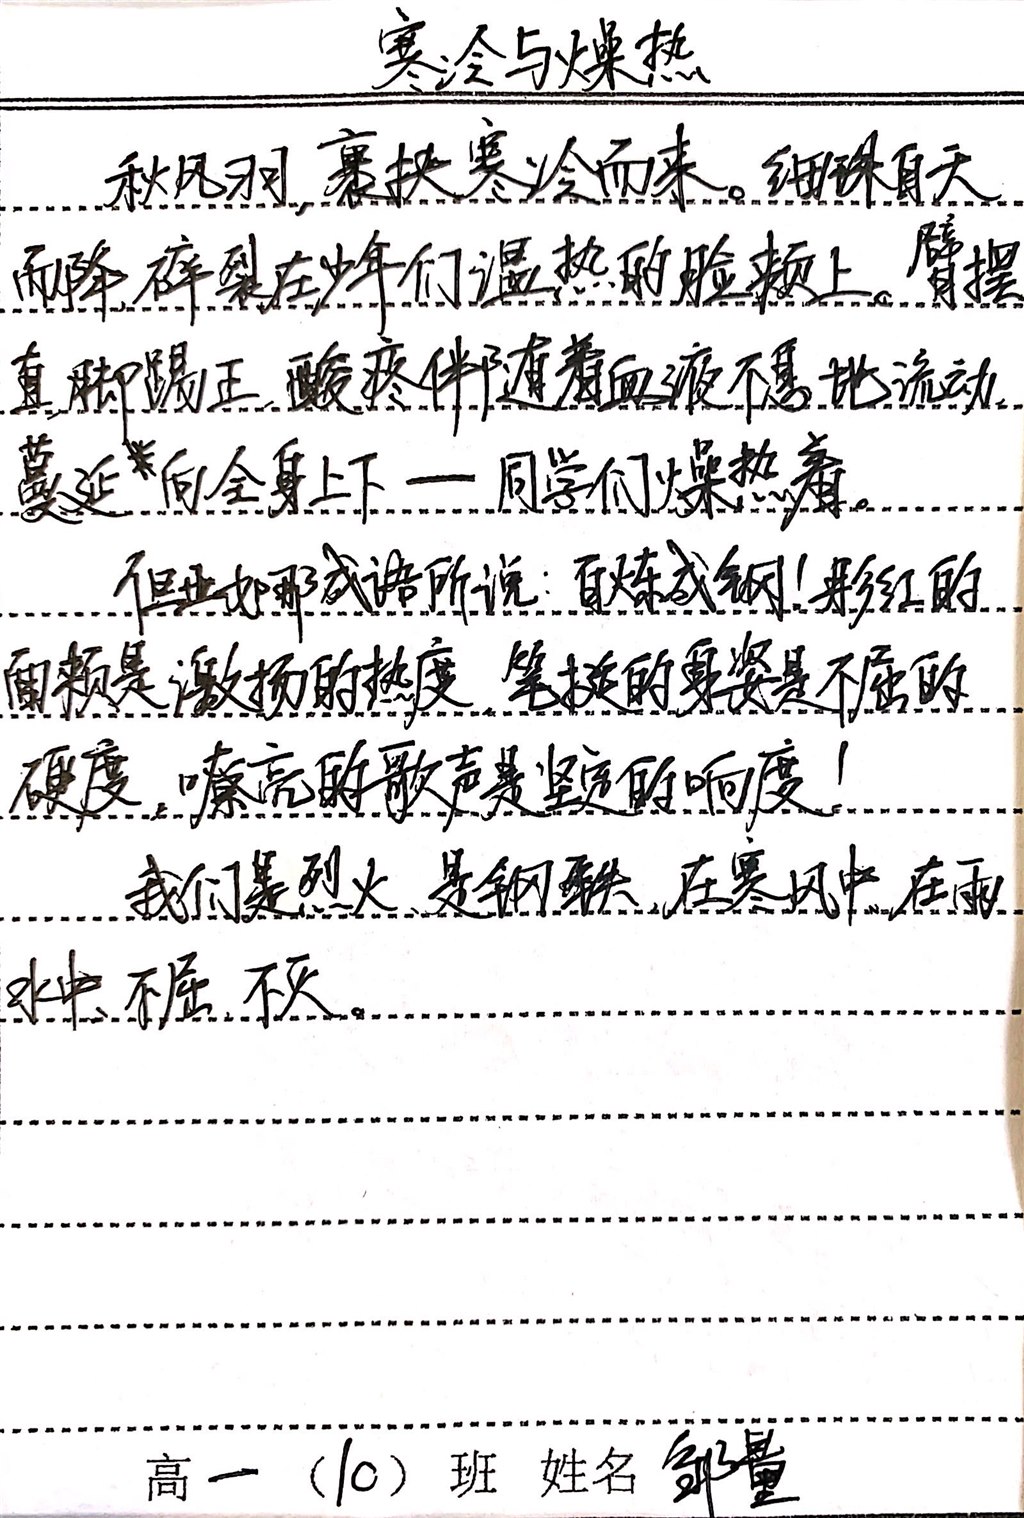 寒冷与燥热
秋风习习,裹挟寒冷而来。细珠自天
而降,碎裂在少年们温热的脸颊上。臂摆
直,脚踢正,酸疼伴随着血液不息地流动,
蔓延向全身上下——同学们燥热着。
但正如那成语所说:百炼成钢!彤红的
面颊是激扬的热度,笔挺的身姿是不屈的
硬度,嘹亮的歌声是坚定的响度!
我们是烈火,是钢铁,在寒风中,在雨
水中,不屈,不灭。
高一(10)班 姓名 邹量